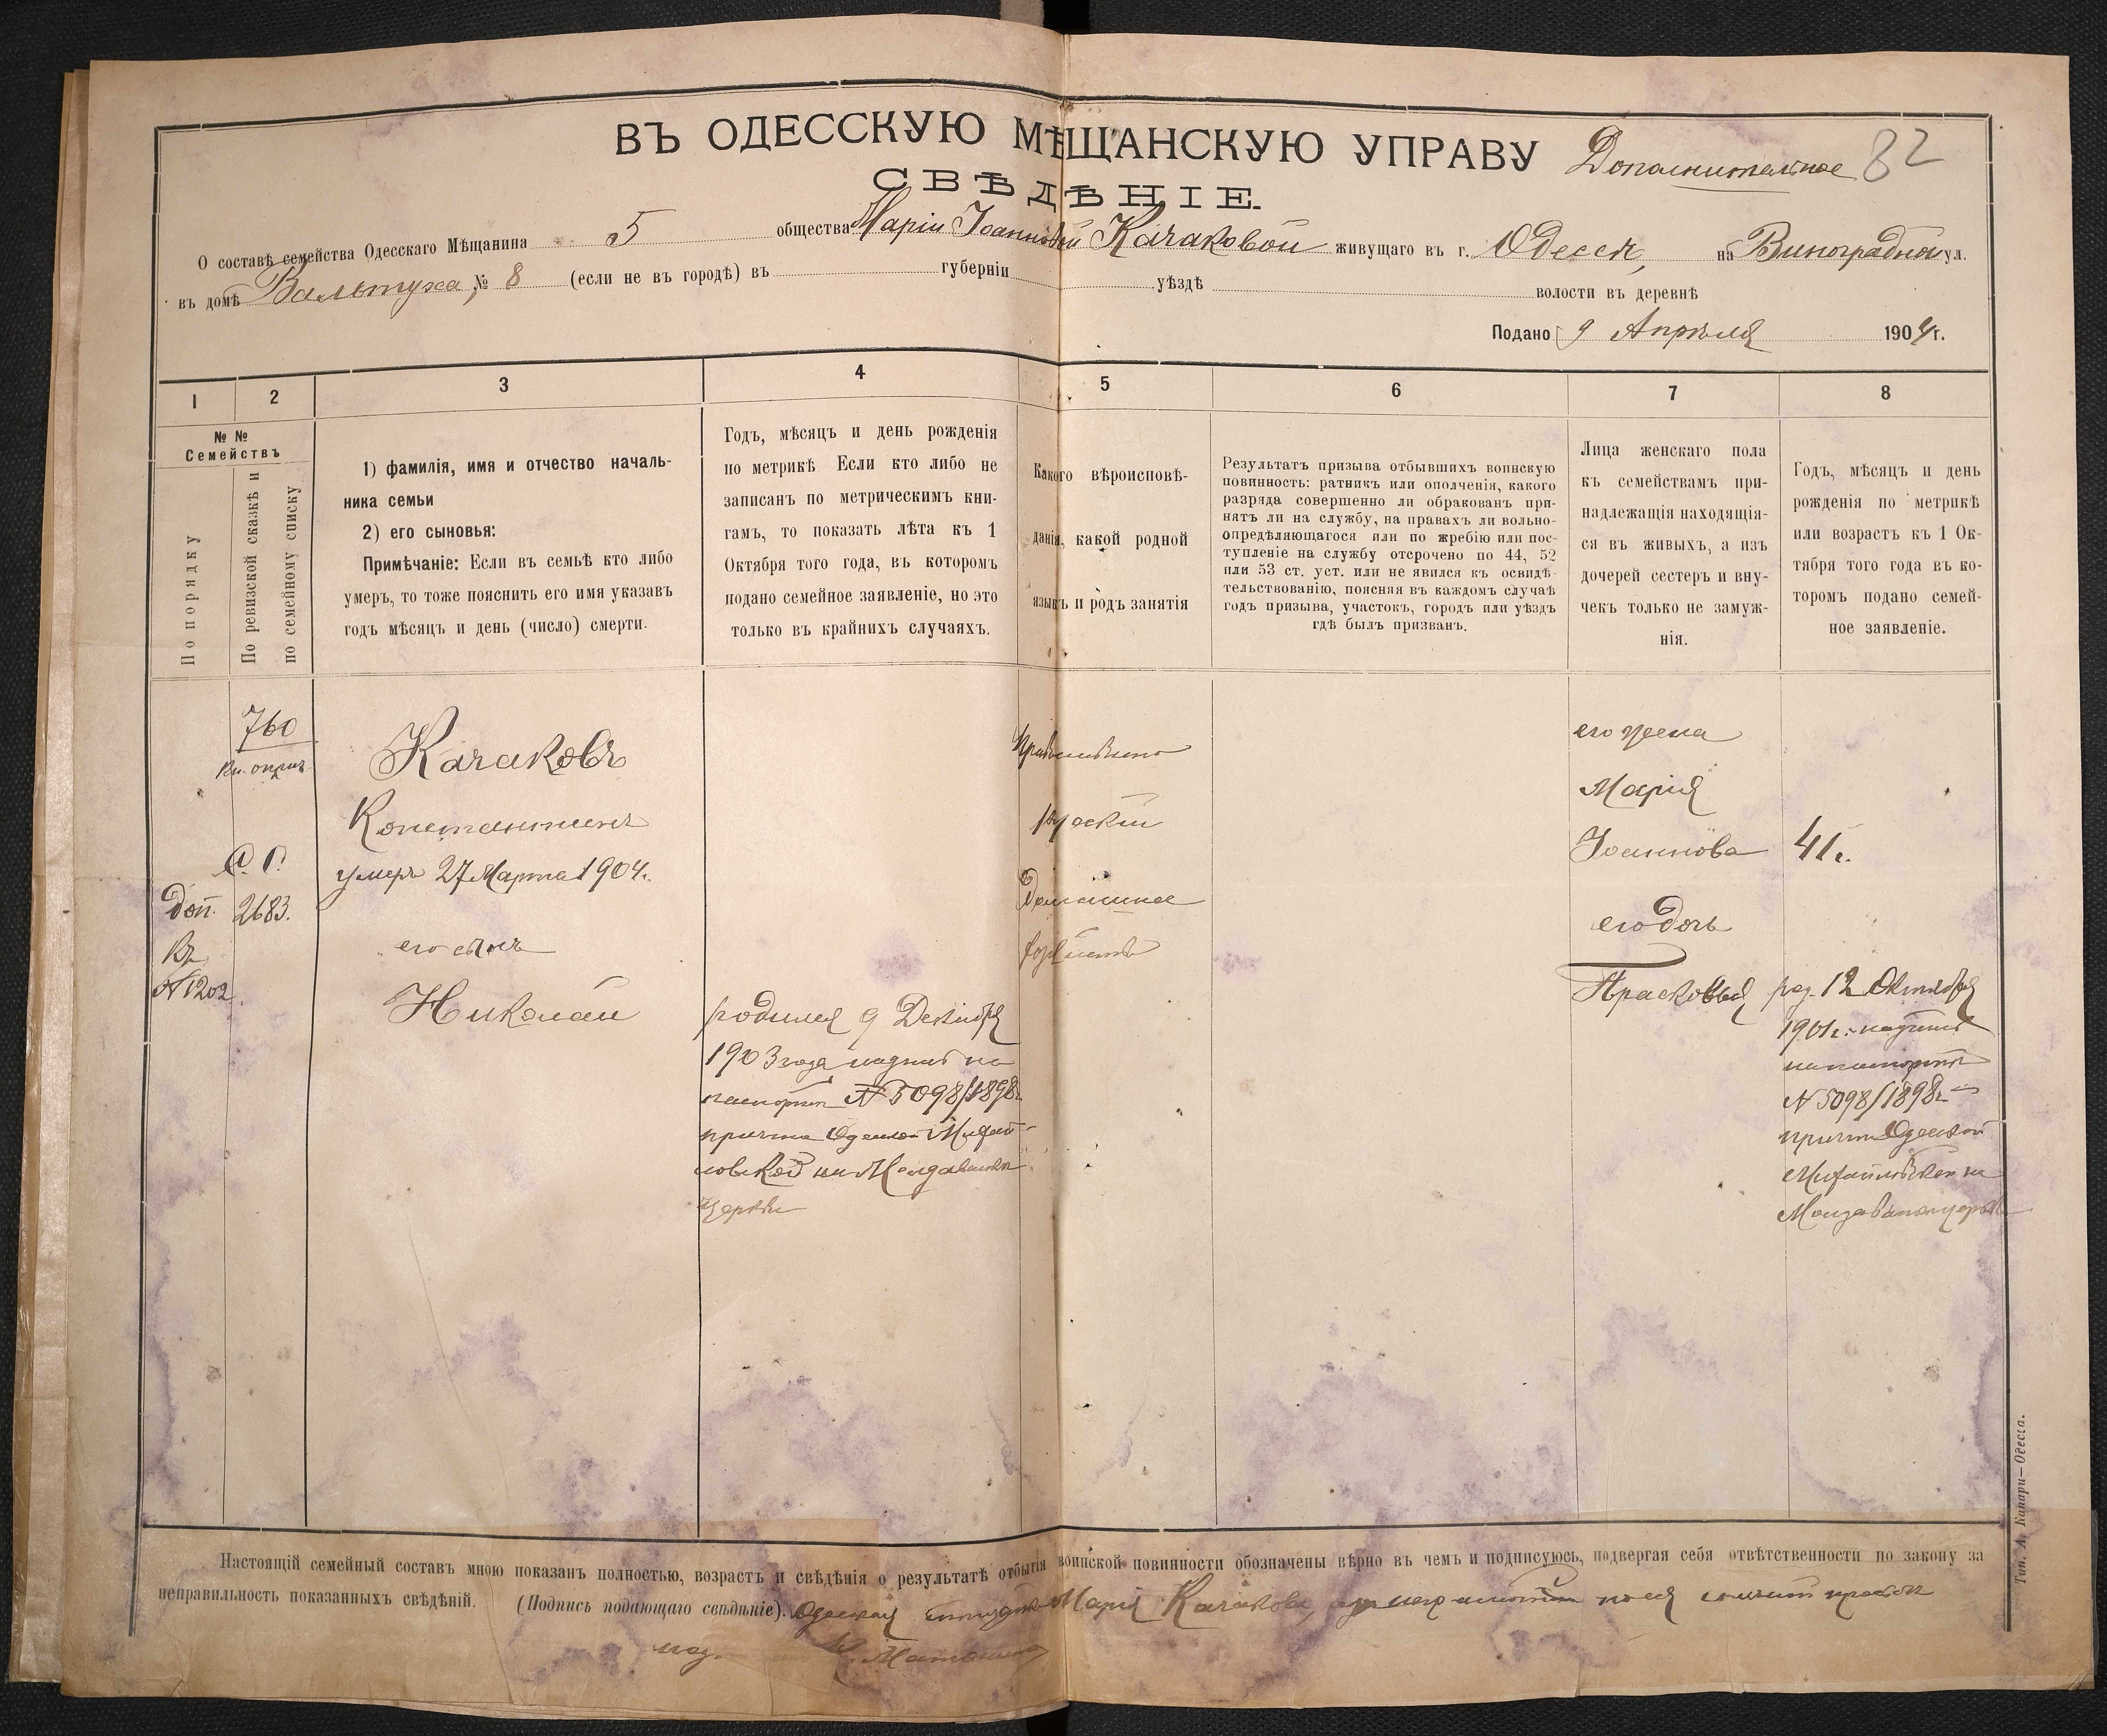 ВЪ ОДЕССКУЮ МѢЩАНСКУЮ УПРАВУ Дополнительное 82
СВѢДѢНІЕ.
О составѣ семейства Одесскаго Мѣщанина 5 общества Маріи Іоанновой Качаковой живущаго въ г. Одессѣ, на Виноградной ул.
въ домѣ Вальтуха, № 8 (если не въ городѣ) въ губерніи уѣздѣ волости въ деревнѣ
Подано 9 Апрѣля 1904 г.
1 2 3 4 5 6 7 8
№ №
Семействъ
По порядку
По ревизской сказкѣ и
по семейному списку
1) фамилія, имя и отчество началь-
ника семьи
2) его сыновья:
Примѣчаніе: Если въ семьѣ кто либо
умеръ, то тоже пояснить его имя указавъ
годъ мѣсяцъ и день (число) смерти.
Годъ, мѣсяцъ и день рожденія
по метрикѣ Если кто либо не
записанъ по метрическимъ кни-
гамъ, то показать лѣта къ 1
Октября того года, въ которомъ
подано семейное заявленіе, но это
только въ крайнихъ случаяхъ.
Какого вѣроисповѣ-
данія, какой родной
языкъ и родъ занятія
Результатъ призыва отбывшихъ воинскую
повинность: ратникъ или ополченія, какого
разряда совершенно ли обракованъ при-
нятъ ли на службу, на правахъ ли вольно-
опредѣляющагося или по жребію или пос-
тупленіе на службу отсрочено по 44, 52
или 53 ст. уст. или не явился къ освидѣ-
тельствованію, поясняя въ каждомъ случаѣ
годъ призыва, участокъ, городъ или уѣздъ
гдѣ былъ призванъ.
Лица женскаго пола
къ семействамъ при-
надлежащія находящія-
ся въ живыхъ, а изъ
дочерей сестеръ и вну-
чекъ только не замуж-
нія.
Годъ, мѣсяцъ и день
рожденія по метрикѣ
или возрастъ къ 1 Ок-
тября того года въ ко-
торомъ подано семей-
ное заявленіе.
760
Доп. 2683.
Вх.
№ 1202.
Качаковъ
Константинъ
умеръ 27 Марта 1904 г.
его сынъ
Николай
родился 9 Декабря
1903 года надпись на
паспортѣ № 5098/1898 г.
причта Одесской Михай-
ловской на Молдаванкѣ
церкви
Православное
русскій
Домашнее
его жена
Марія
Іоаннова 41 г.
его дочь
Прасковья
род. 12 Октября
1901 г. надпись
на паспортѣ
№ 5098/1898 г.
причта Одесской
Михайловской на
Молдаванкѣ церкви
Настоящій семейный составъ мною показанъ полностью, возрастъ и свѣдѣнія о результатѣ отбытія воинской повинности обозначены вѣрно въ чемъ и подписуюсь, подвергая себя отвѣтственности по закону за
неправильность показанныхъ свѣдѣній. (Подпись подающаго свѣдѣніе). Одесская мѣщанка Марія Качакова, а неграмотной по ея личной просьбѣ
Тип. А. Капари—Одесса.